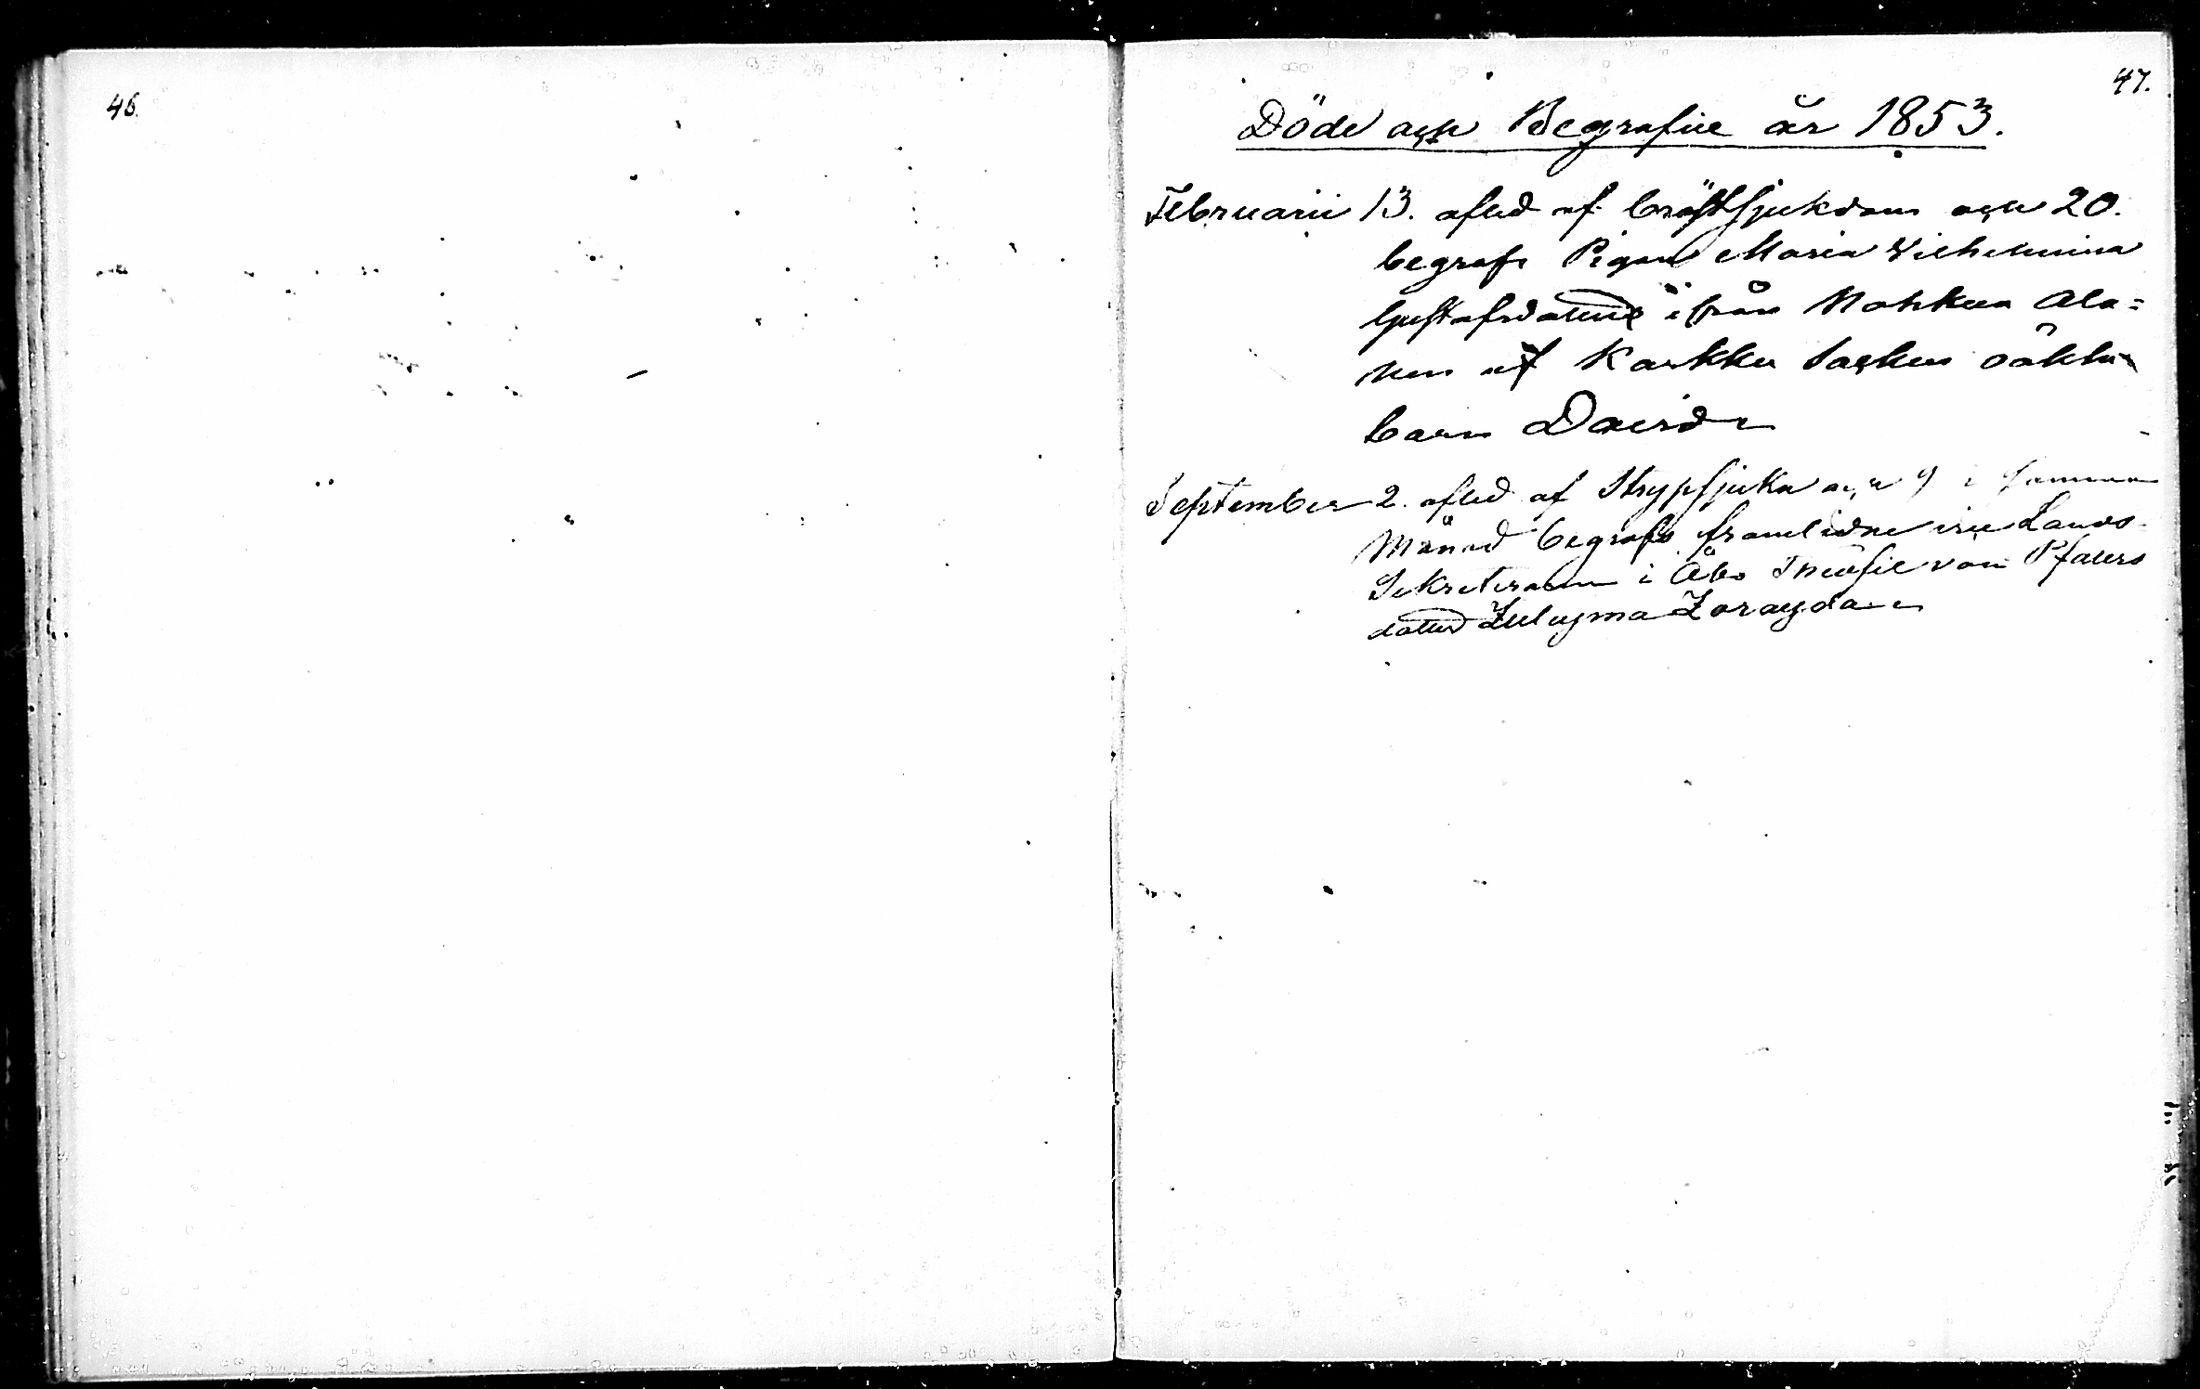 46.
47.
Döde och Begrafne år 1853.
Februarii 13. afled af bröstsjukdom och 20.
begrofs Pigan Maria Wilhelmina
Gustafsdotters ifrån Nohkua Ala=
nen af Karkku Socken oäkta
barn David
September 2. afled af Strypsjuka och 9 i samma
Månad begrofs framlidne Lands-
Sekreteraren i Åbo von Pfalers
dotter Zulyma Zorayda